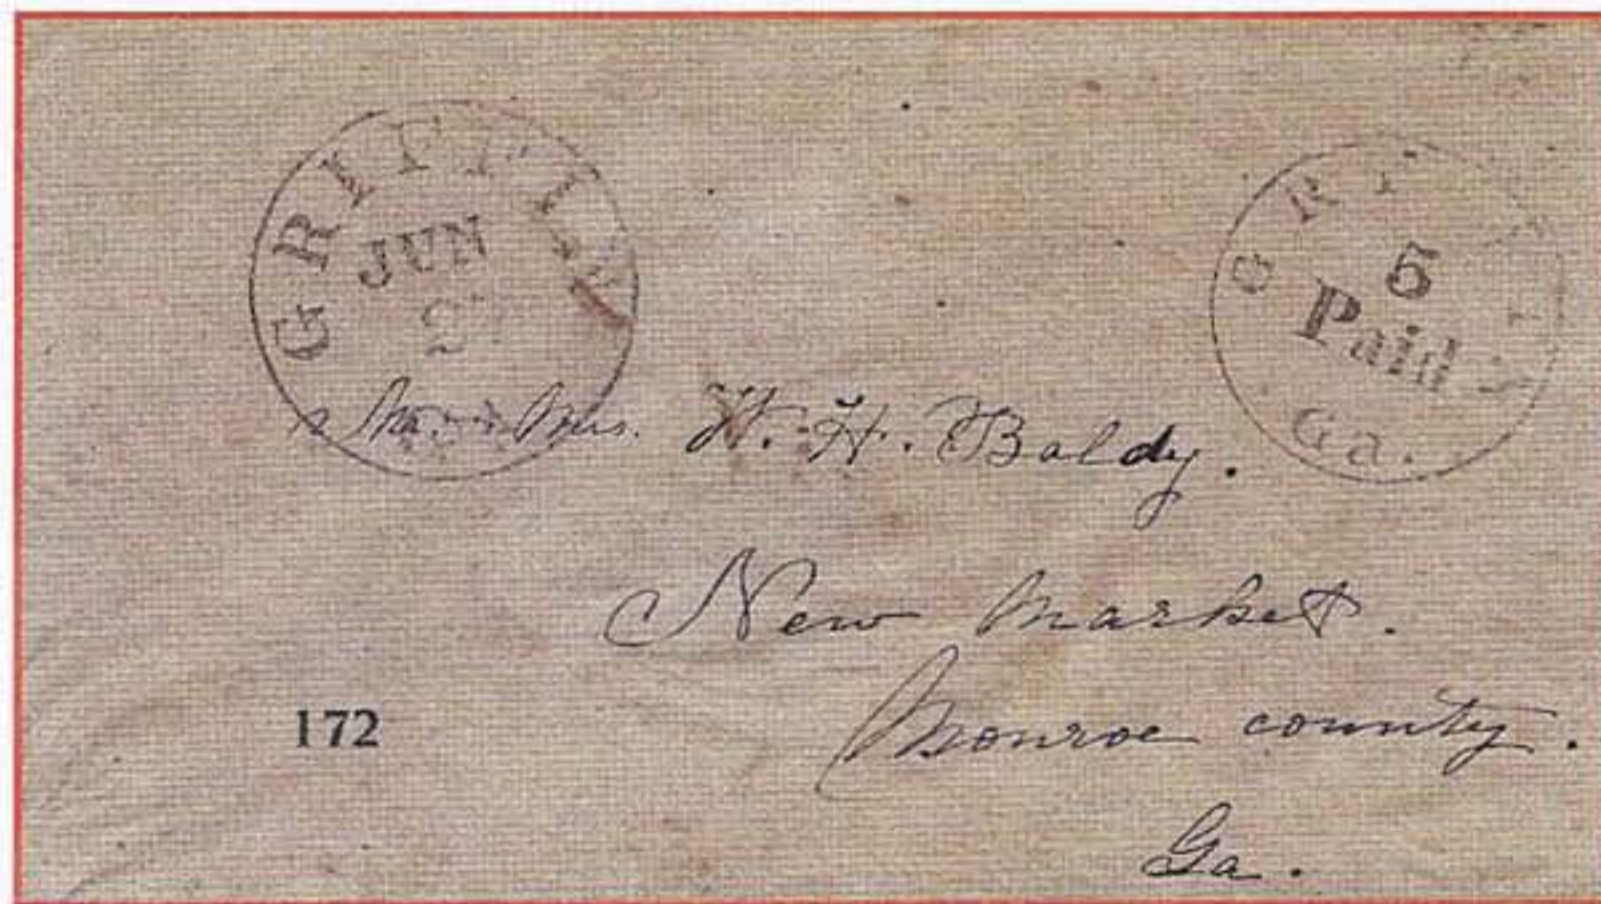 GRIFFIN
JUN
GRIFFIN
5
Paid
Ga.
Mrs. W. H. Baldy.
New Market.
Monroe county.
Ga.
172